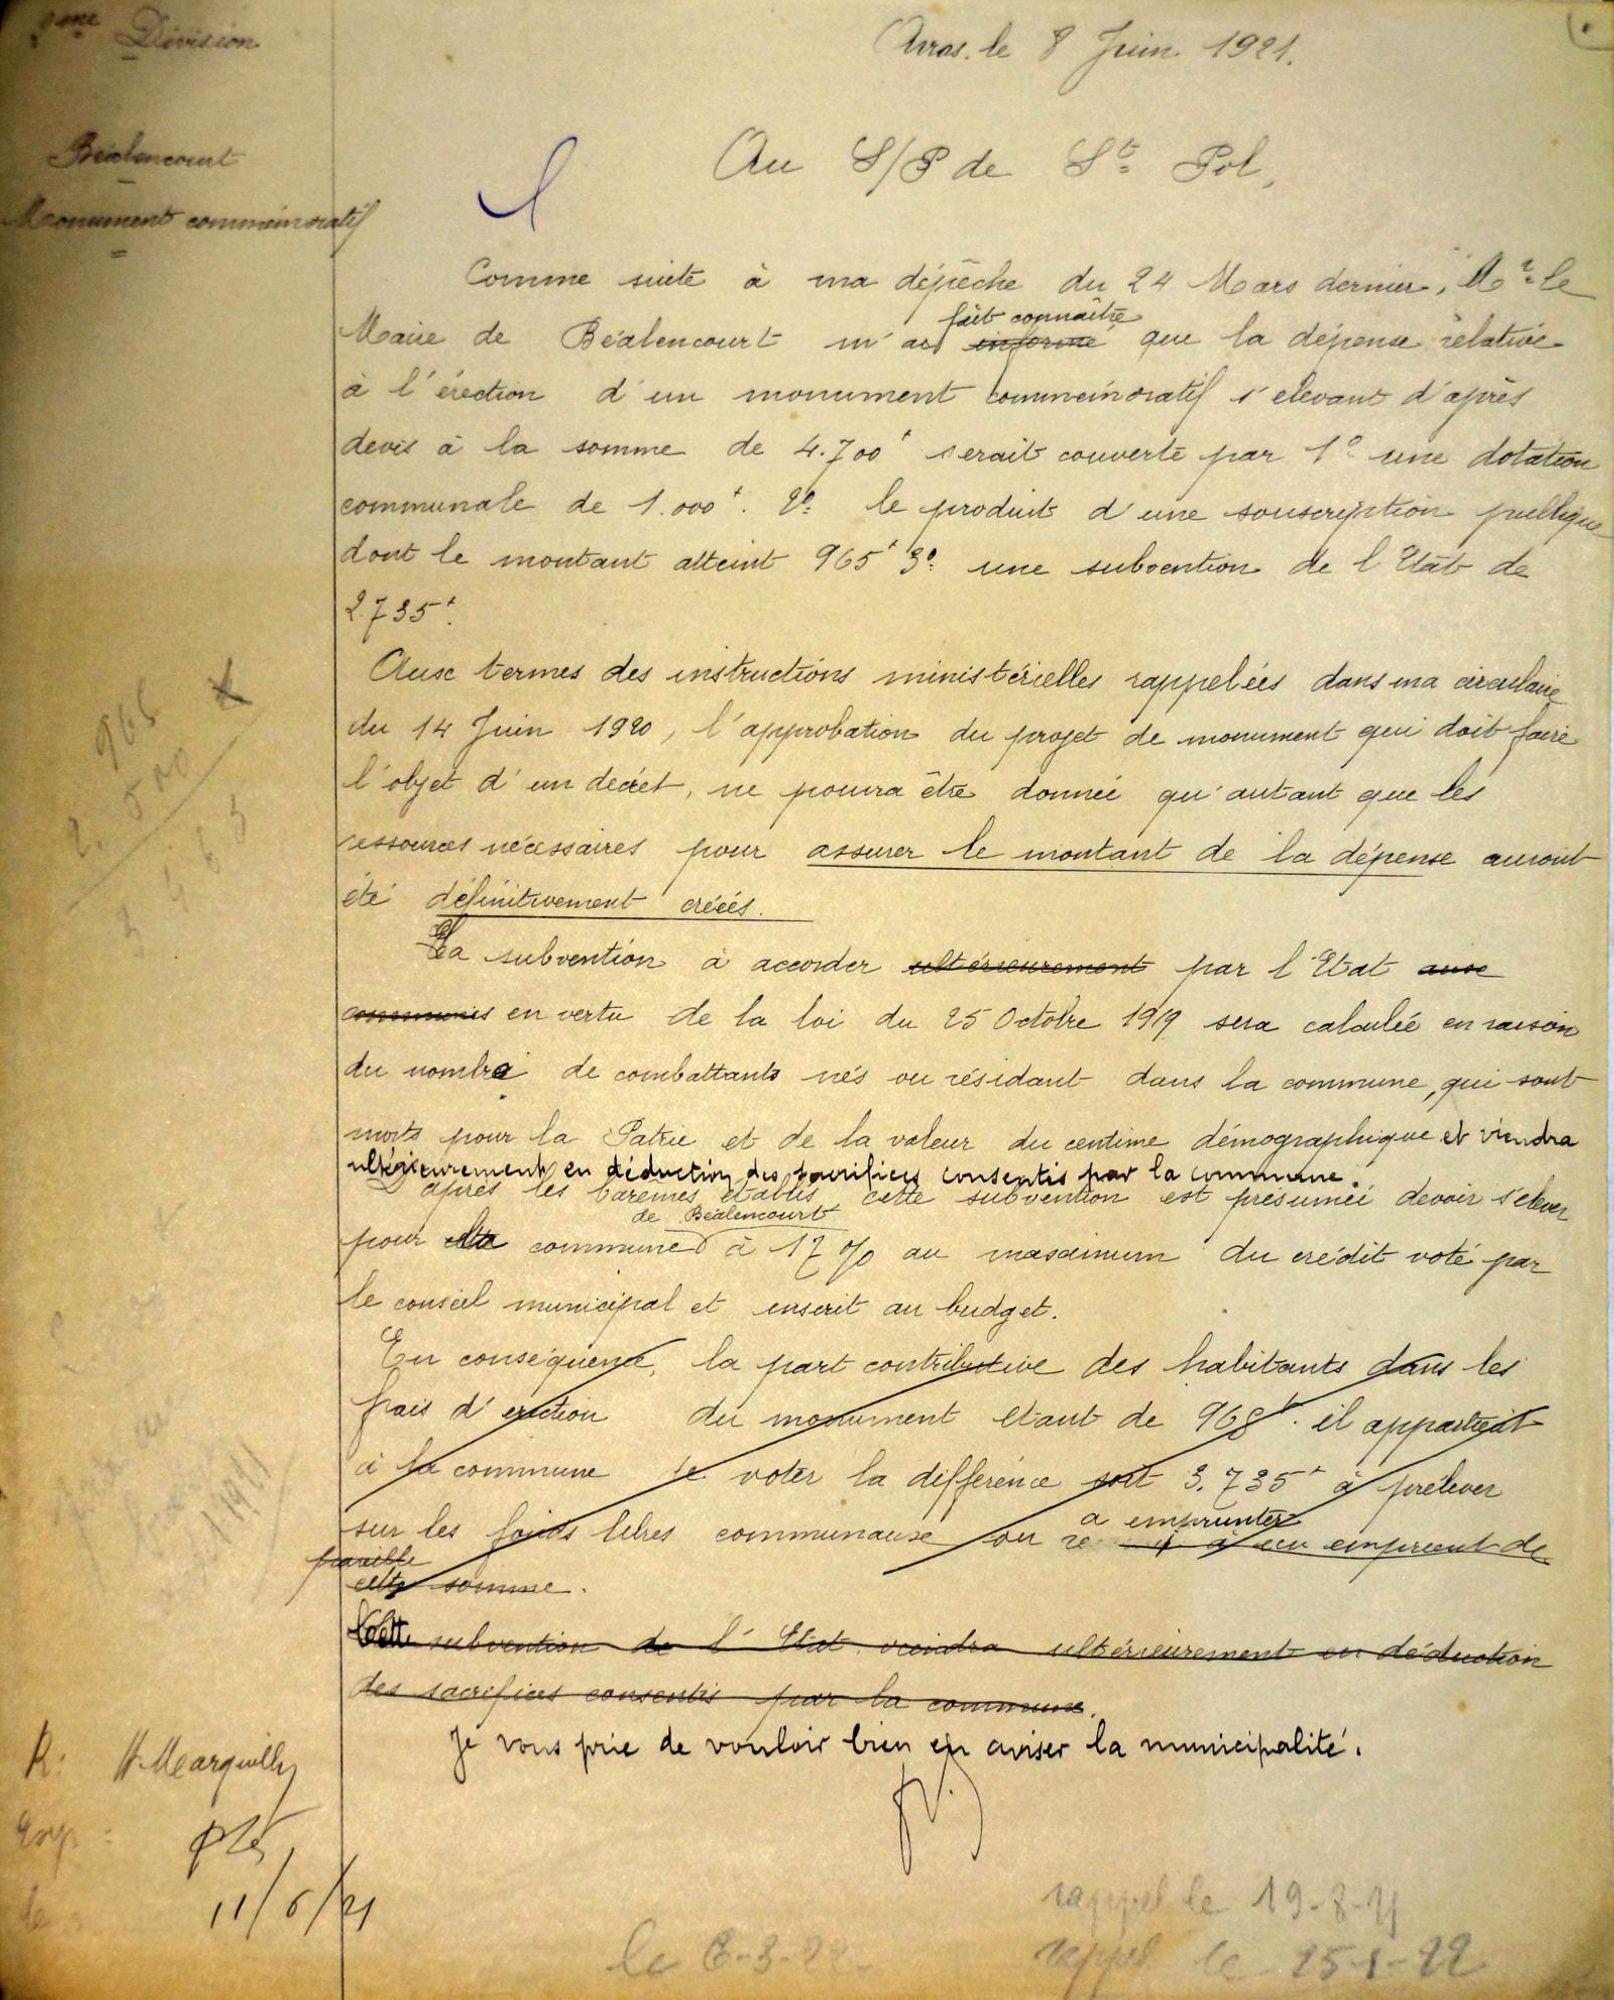 Division
Arras. le 8 Juin 1921.
Béalencourt
Monument commémoratif
Au S/P de St Pol,
Comme suite à ma dépêche du 24 Mars dernier, Mr le
fait connaître
Maire de Béalencourt m'a informé que la dépense relative
à l'érection d'un monument commémoratif s'élevant d'après
devis à la somme de 4.700f serait couverte par 1° une dotation
communale de 1.000f. 2° le produit d'une souscription publique
dont le montant atteint 965f 3° une subvention de l'Etat de
2.735f.
Aux termes des instructions ministérielles rappelées dans ma circulaire
du 14 Juin 1920, l'approbation du projet de monument qui doit faire
l'objet d'un décret, ne pourra être donnée qu'autant que les
ressources nécessaires pour assurer le montant de la dépense auront
été définitivement créées.
La subvention à accorder ultérieurement par l'Etat aux
communes en vertu de la loi du 25 Octobre 1919 sera calculée en raison
du nombre de combattants nés ou résidant dans la commune, qui sont
morts pour la Patrie et de la valeur du centime démographique et viendra
ultérieurement en déduction des sacrifices consentis par la commune.
D'après les barèmes établis cette subvention est présumée devoir s'élever
de Béalencourt
pour la commune à 17 % au maximum du crédit voté par
le conseil municipal et inscrit au budget.
En conséquence, la part contributive des habitants dans les
frais d'erection du monument étant de 968f. il appartient
à la commune de voter la différence soit 3.735f à prélever
sur les fonds libres communaux ou
a emprunter
à un emprunt de
pareille
cette somme.
Cette subvention de l'Etat viendra ultérieurement en déduction
des sacrifices consentis par la commune.
Je vous prie de vouloir bien en aviser la municipalité.
965
R: H. Mearquilly
Exp:
le
11/6/21
rappel le 19-8-21
rappel le 25-1-22
le 6-3-22